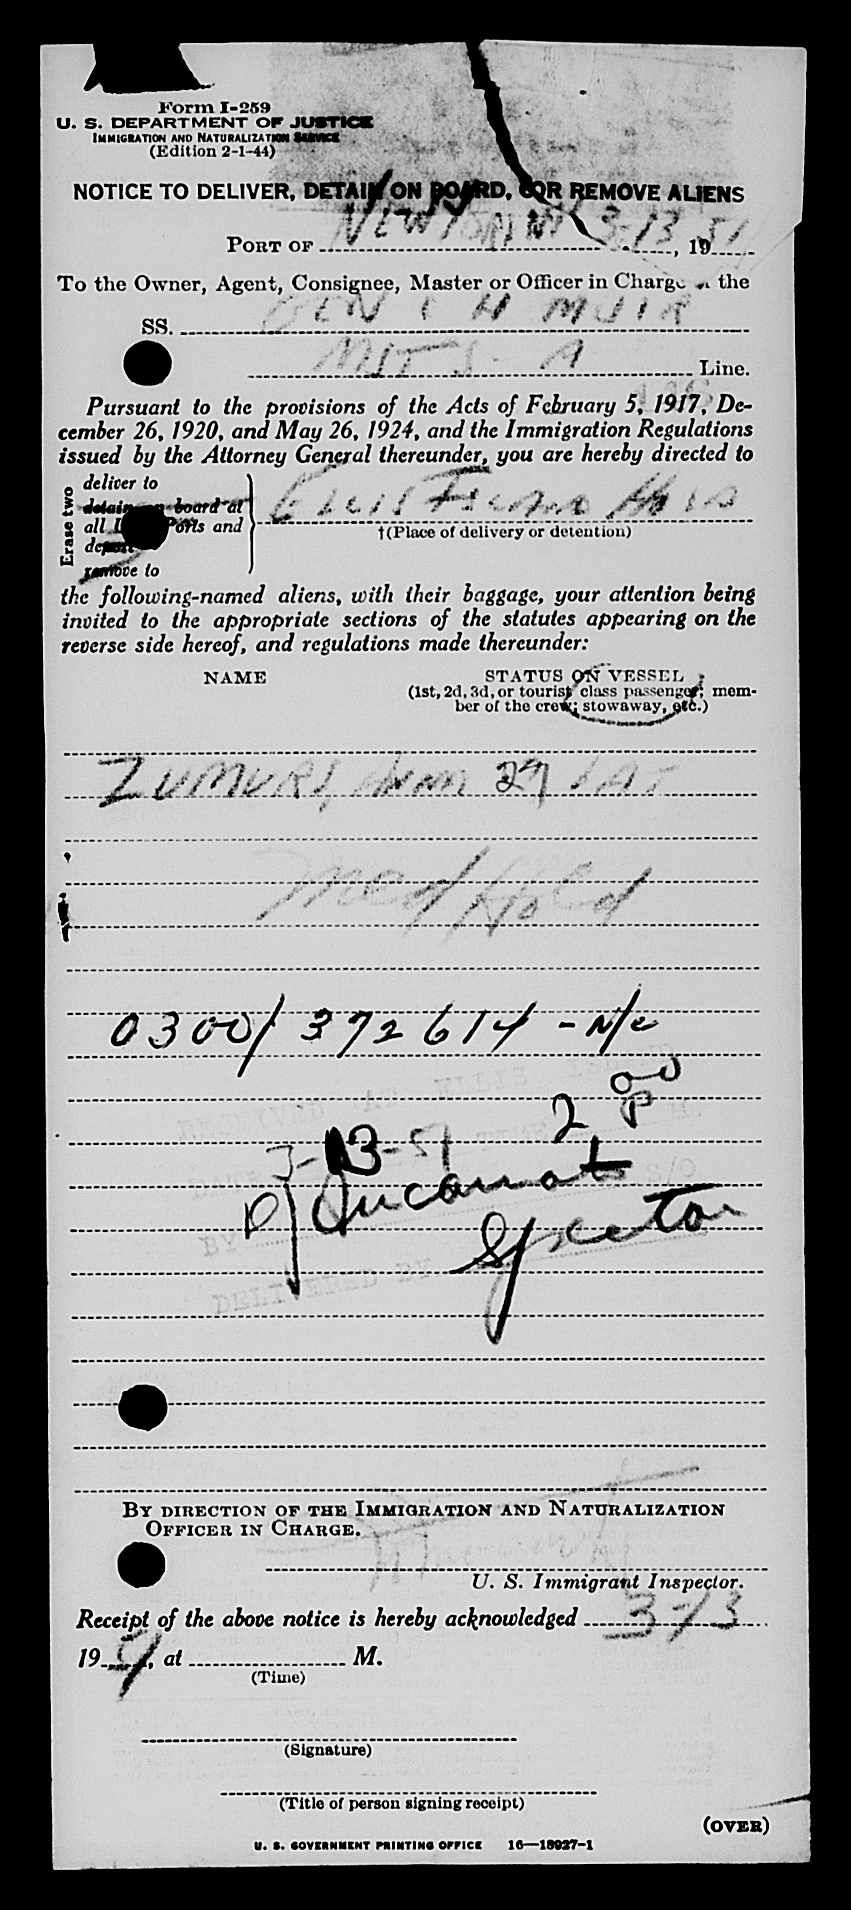 Form I-259
U. S. DEPARTMENT OF JUSTICE
IMMIGRATION AND NATURALIZATION SERVICE
(Edition 2-1-44)
NOTICE TO DELIVER, DETAIN ON BOARD, OR REMOVE ALIENS
PORT OF NEW YORK NY 3-13, 1951
To the Owner, Agent, Consignee, Master or Officer in Charge of the
SS. GEN C H MUIR
MSTS - A Line.
Pursuant to the provisions of the Acts of February 5, 1917, De-
cember 26, 1920, and May 26, 1924, and the Immigration Regulations
issued by the Attorney General thereunder, you are hereby directed to
Erase two
deliver to
detain on board at
all U. S. Ports and
deport
remove to
ELLIS ISLAND
†(Place of delivery or detention)
the following-named aliens, with their baggage, your attention being
invited to the appropriate sections of the statutes appearing on the
reverse side hereof, and regulations made thereunder:
NAME STATUS ON VESSEL
(1st, 2d, 3d, or tourist class passenger; mem-
ber of the crew; stowaway, etc.)
29
Med Hold
0300/372614 - N/C
RECEIVED AT ELLIS ISLAND
2 00 P M.
3-13-51
BY
DELIVERED BY
BY DIRECTION OF THE IMMIGRATION AND NATURALIZATION
OFFICER IN CHARGE.
U. S. Immigrant Inspector.
Receipt of the above notice is hereby acknowledged 3-13
1951, at M.
(Time)
(Signature)
(Title of person signing receipt)
(OVER)
U. S. GOVERNMENT PRINTING OFFICE 16—18927-1